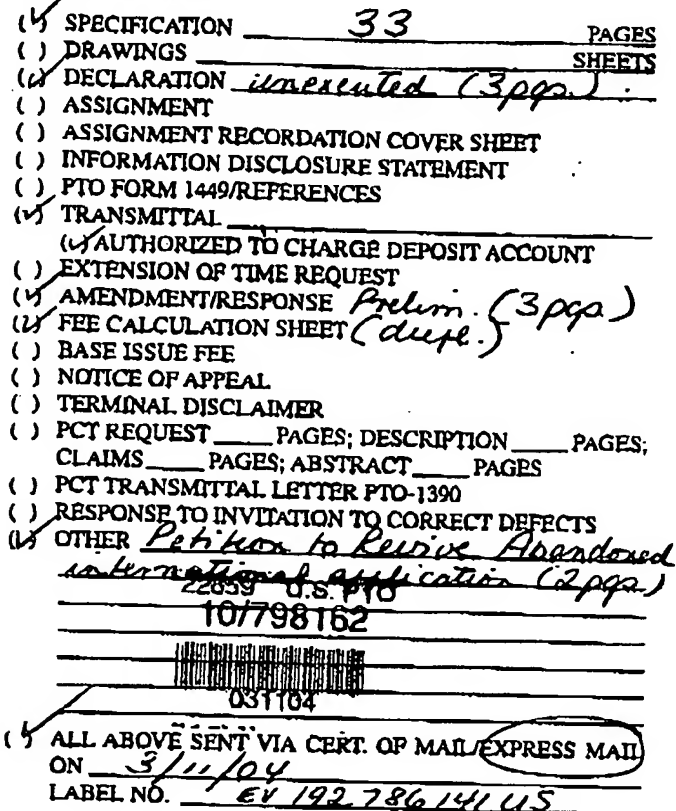 (✓) SPECIFICATION 33 PAGES
( ) DRAWINGS SHEETS
(✓) DECLARATION unexecuted (3pgs.)
( ) ASSIGNMENT
( ) ASSIGNMENT RECORDATION COVER SHEET
( ) INFORMATION DISCLOSURE STATEMENT
( ) PTO FORM 1449/REFERENCES
(✓) TRANSMITTAL
(✓) AUTHORIZED TO CHARGE DEPOSIT ACCOUNT
( ) EXTENSION OF TIME REQUEST
(✓) AMENDMENT/RESPONSE Prelim. (3pgs.)
(✓) FEE CALCULATION SHEET (dupl.)
( ) BASE ISSUE FEE
( ) NOTICE OF APPEAL
( ) TERMINAL DISCLAIMER
( ) PCT REQUEST ____ PAGES; DESCRIPTION ____ PAGES;
CLAIMS ____ PAGES; ABSTRACT ____ PAGES
( ) PCT TRANSMITTAL LETTER PTO-1390
( ) RESPONSE TO INVITATION TO CORRECT DEFECTS
(✓) OTHER Petition to Revive Abandoned
international application (2pgs.)
22859 U.S. PTO
10/798162
031104
(✓) ALL ABOVE SENT VIA CERT. OF MAIL/EXPRESS MAIL
ON 3/11/04
LABEL NO. EV 192 786 141 US